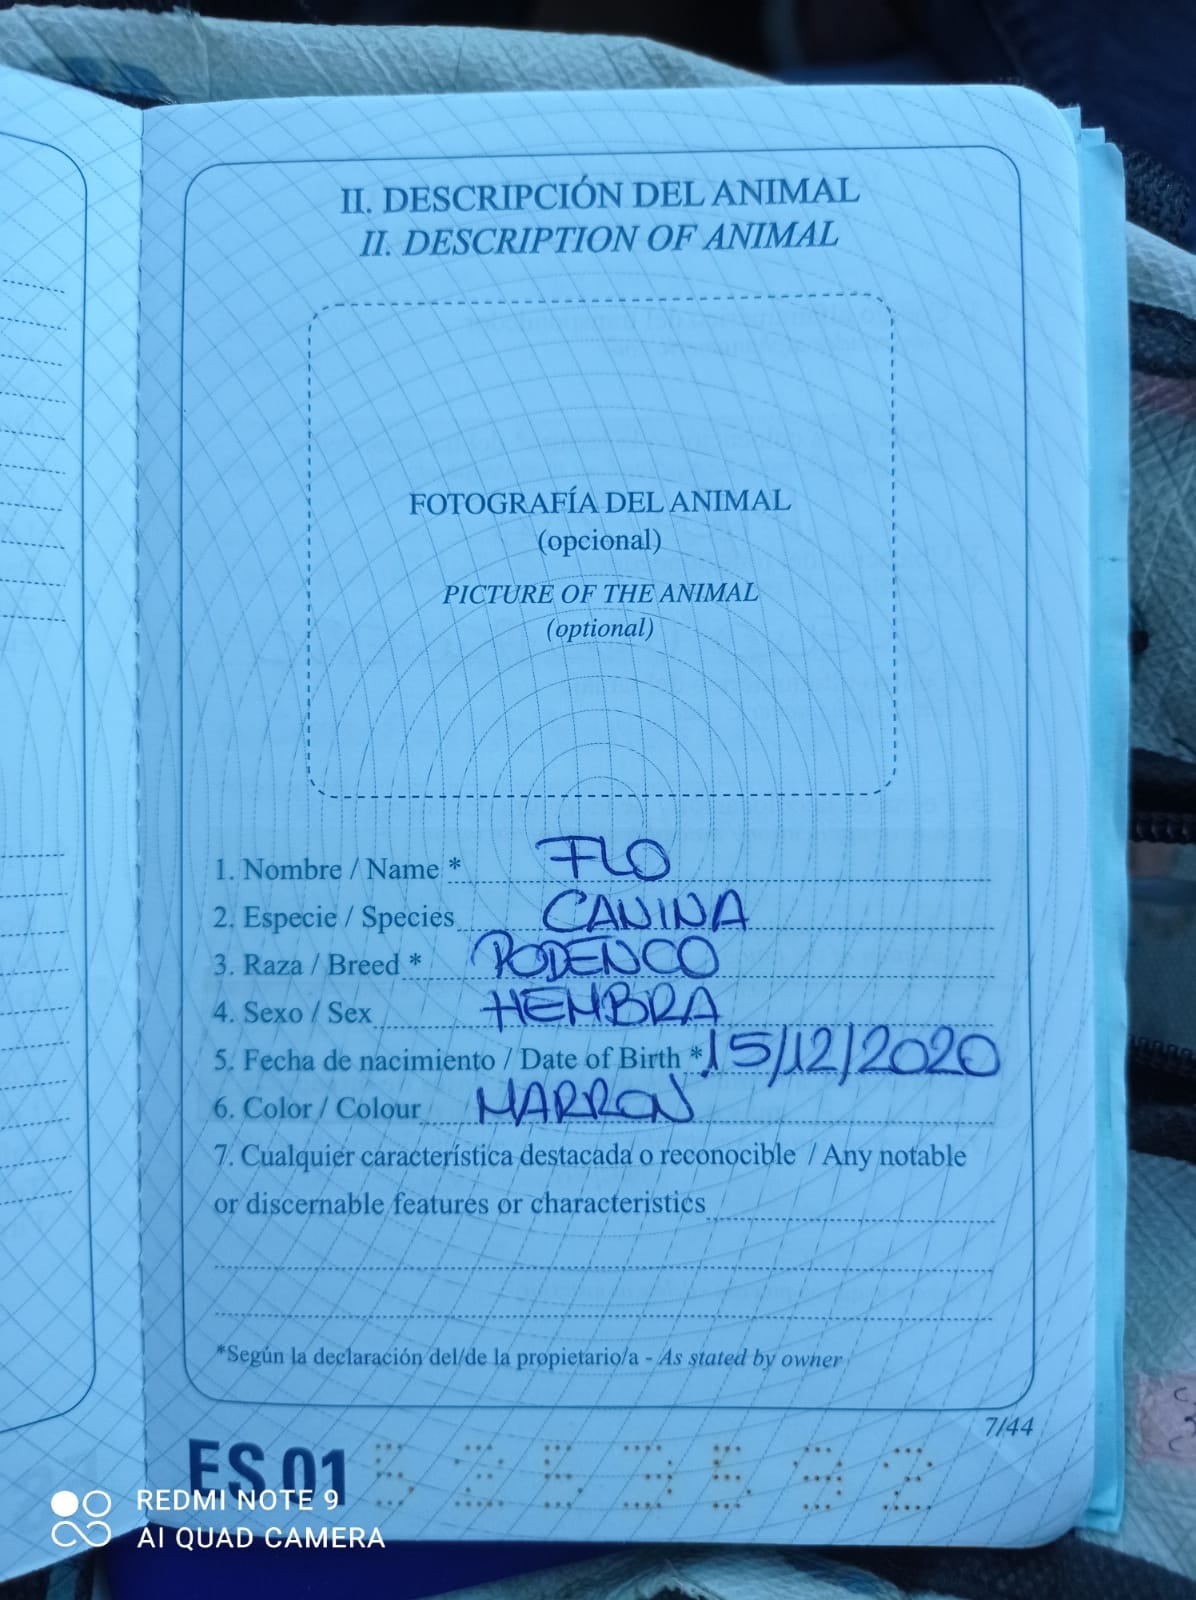 II. DESCRIPCIÓN DEL ANIMAL
II. DESCRIPTION OF ANIMAL
FOTOGRAFÍA DEL ANIMAL
(opcional)
PICTURE OF THE ANIMAL
(optional)
1. Nombre / Name * FLO
2. Especie / Species CANINA
3. Raza / Breed * PODENCO
4. Sexo / Sex HEMBRA
5. Fecha de nacimiento / Date of Birth * 15/12/2020
6. Color / Colour MARRON
7. Cualquier característica destacada o reconocible / Any notable
or discernable features or characteristics
*Según la declaración del/de la propietario/a - As stated by owner
7/44
ES 01
REDMI NOTE 9
AI QUAD CAMERA